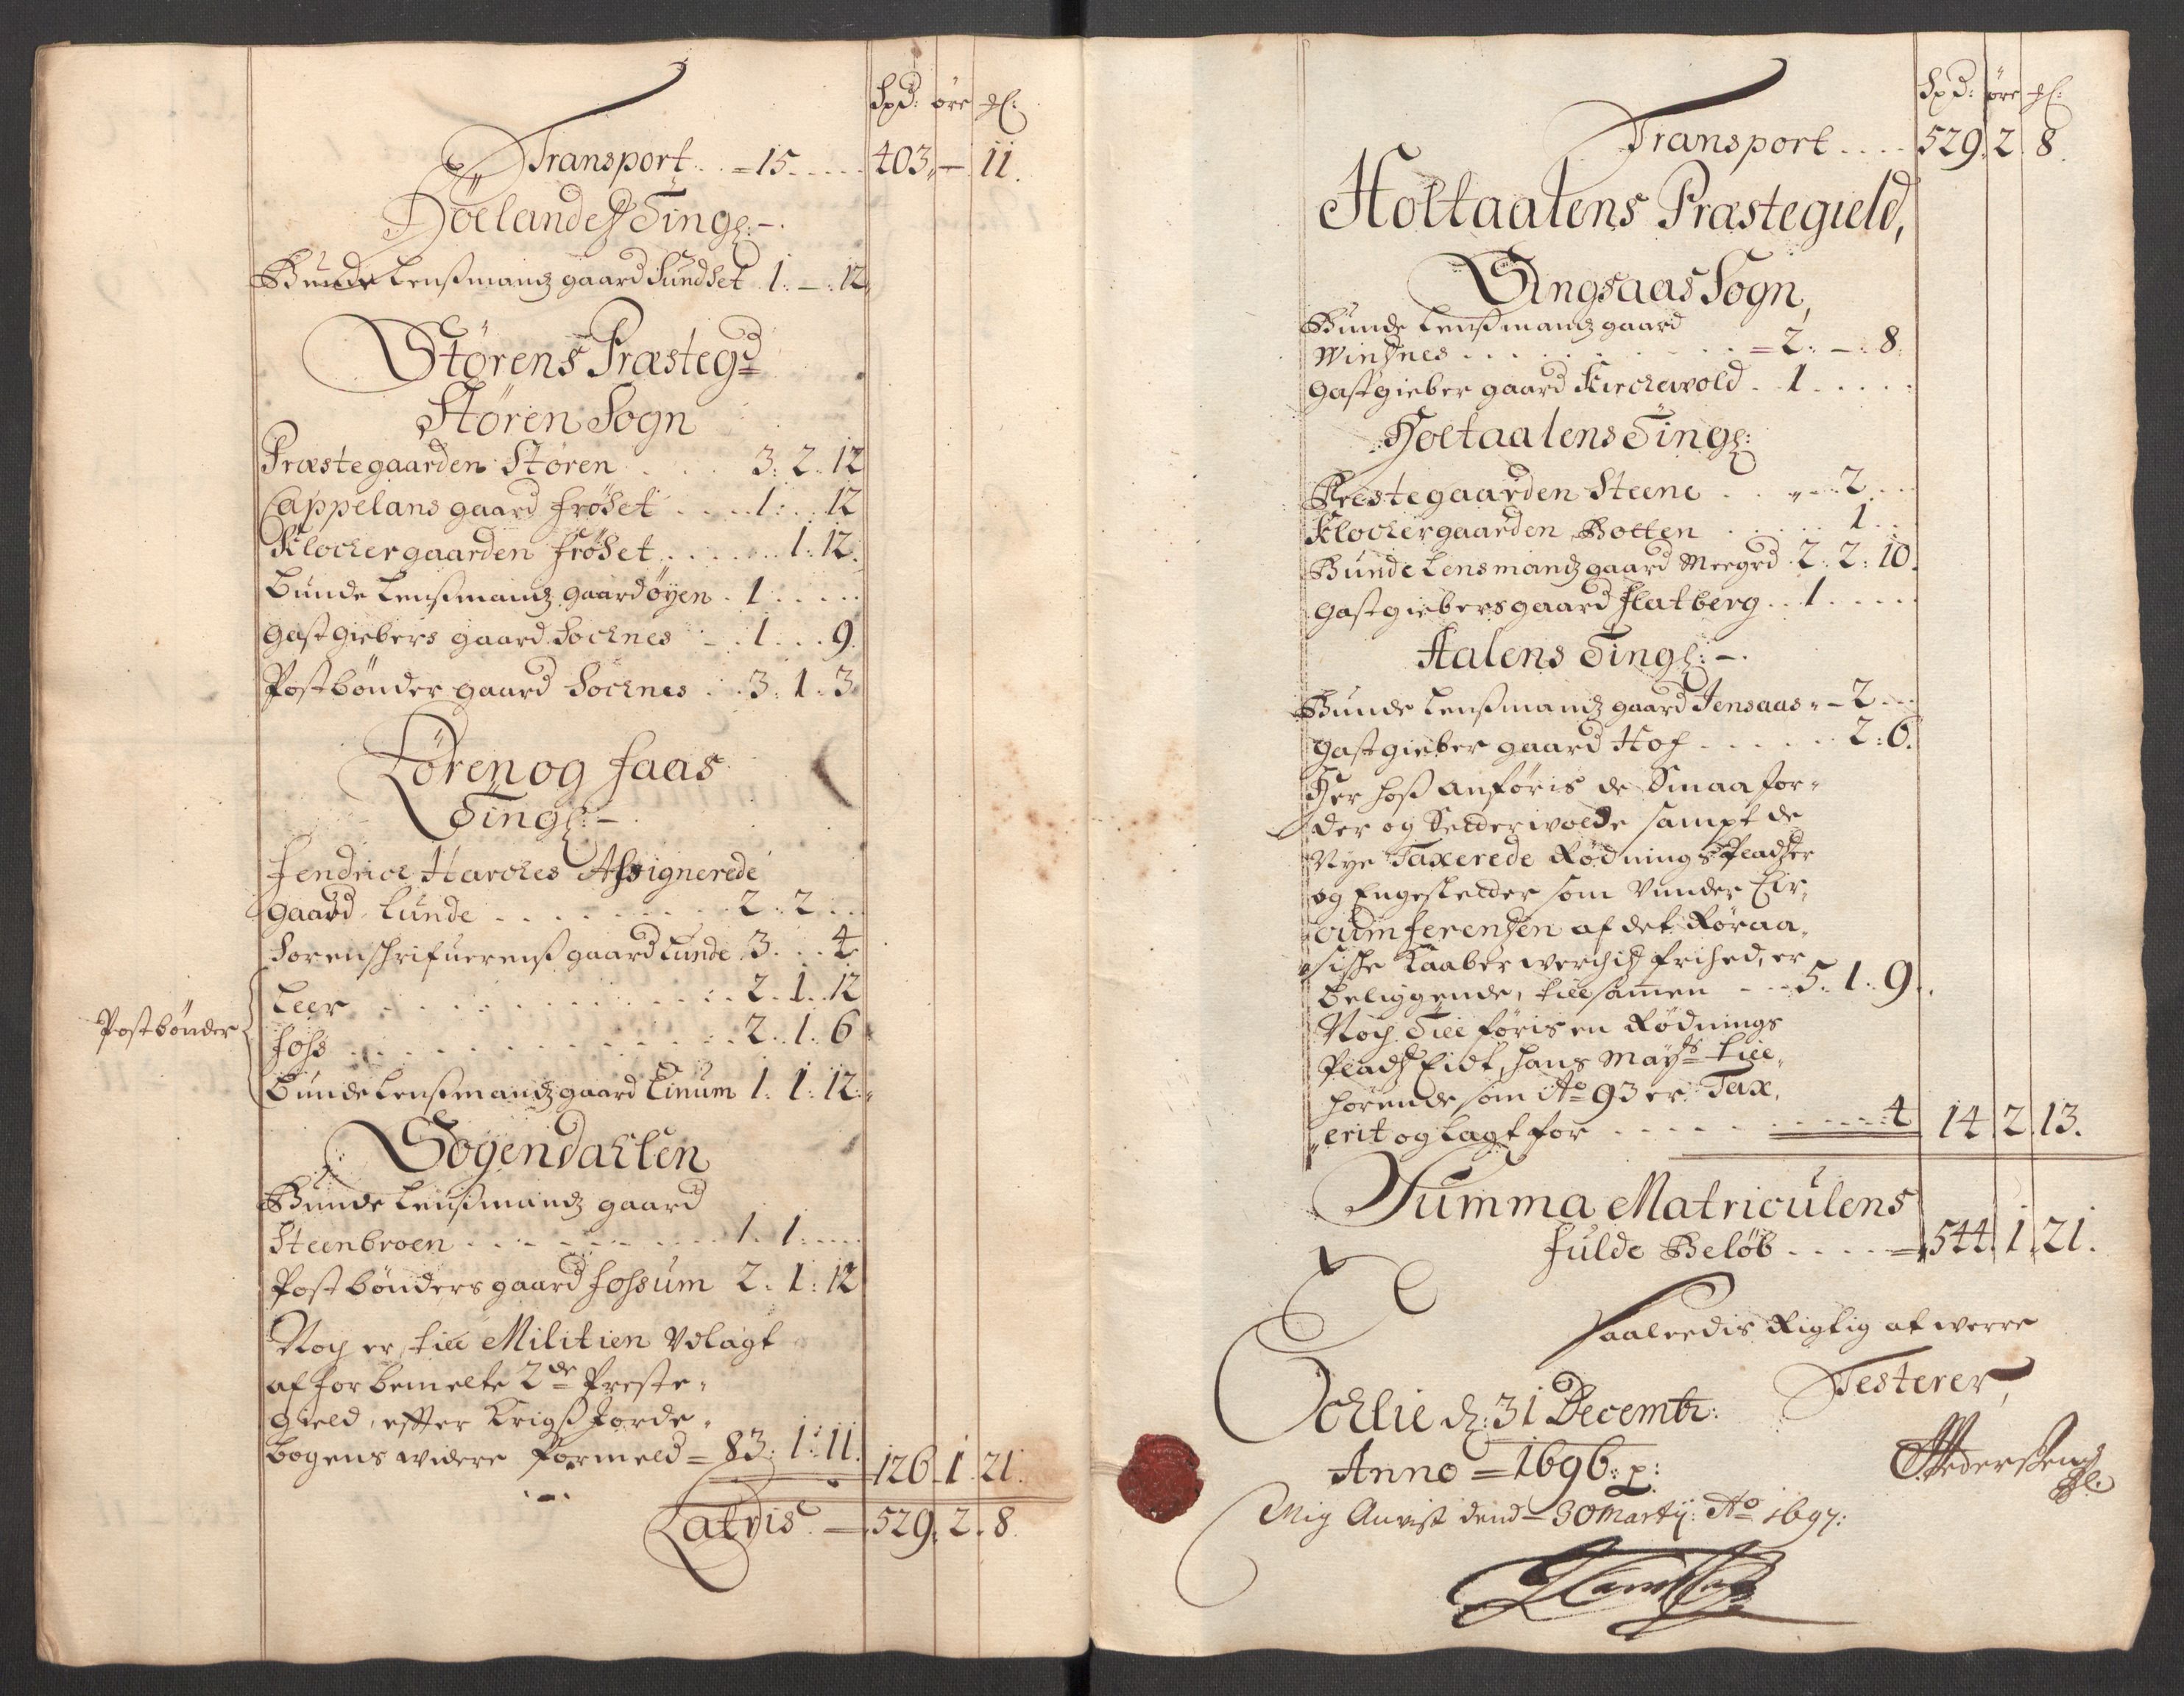 Spd: öre ₰:
Transport . . = 15 . . . . . 403 . — . 11.
Höelandes Ting:–.
Bunde Lenßmandz gaard Sundset 1: – : 12
Störens Præsteg:d
Stören Sogn
Præstegaarden Stören . . . . 3: 2: 12
Cappelans gaard fröset . . . . 1: . . 12
Klockergaarden fröset . . . . . . 1: 12.
Bunde Lenßmandz gaard öyen . 1 . . . . .
Gastgiebers gaard Socknes . . 1 . . . 9.
Postbönder gaard Socknes . . 3: 1: 3
Lören og faas
Ting:–.
Fendrich Harches Assignerede
gaard Lunde . . . . . . . . 2: 2 . .
Sorenschrifuerenß gaard Lunde 3 . . . 4
Postbönder
Leer . . . . . . . . . . . 2. 1. 12
foss . . . . . . . . . . . 2. 1. 6
Bunde Lenßmandz gaard Linum 1. 1: 12:
Sogendahlen
Bunde Lenßmandz gaard
Steenbroen . . . . . . . . 1. 1 . . .
Postbönders gaard fossum 2. 1: 12
Noch er till Militien Udlagt
af for bemelte 2de Preste,
gield, effter Krigß Jorde,
bogens widere formeld = 83: 1: 11. 126. 1. 21.
Latris. — 529. 2. 8.
Spd: öre ₰:
Transport . . . . 529. 2. 8.
Holtaalens Præstegield,
Singsaas Sogn,
Bunde Lenßmandz gaard
Windsnes . . . . . . . . = 2: – : 8.
Gastgieber gaard Kirchewold . . 1 . . . . .
Holtaalens Ting:
Prestegaarden Steene . . . . . 2 . . .
Klockergaarden Botten . . . . . 1 . .
Bunde Lensmandz gaard Meegrd . 2: 2: 10.
Gastgiebersgaard flatberg . . 1 . . . .
Aalens Ting:–.
Bunde Lenßmandz gaard Jensaas . – 2 . . .
Gastgieber gaard Hof . . . . . 2: 6.
Her hoß anföris de Smaa for,
der og Setter wolde sampt de
Nye Taxerede Rödnings Pladzer
og Engesletter som Vunder Cir,
cumferenzen af det Röraa,
sishe Kaaber werchs frihed, er
beliggende, tillsamen - - - 5. 1. 9 .
Noch Till föris en Rödnings
Pladz Eidt, hans Mayts till,
hörende som Ao 93 er Tax,
erit og lagt for . . . . . . . . . 4 14. 2. 13.
Summa Matriculens
fulde Belöb . . . . = 544. 1. 21.
Saaledis Rigtig at werre
Testerer,
Öhlie d: 31 Decembr:
Anno = 1696: p:
Pedersen
Mig Anvist dend 30 Martÿ: Ao 1697: